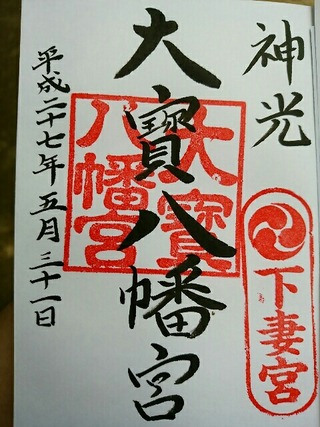 神光
下妻宮
大寳八幡宮
大寳八幡宮
平成二十七年五月三十一日